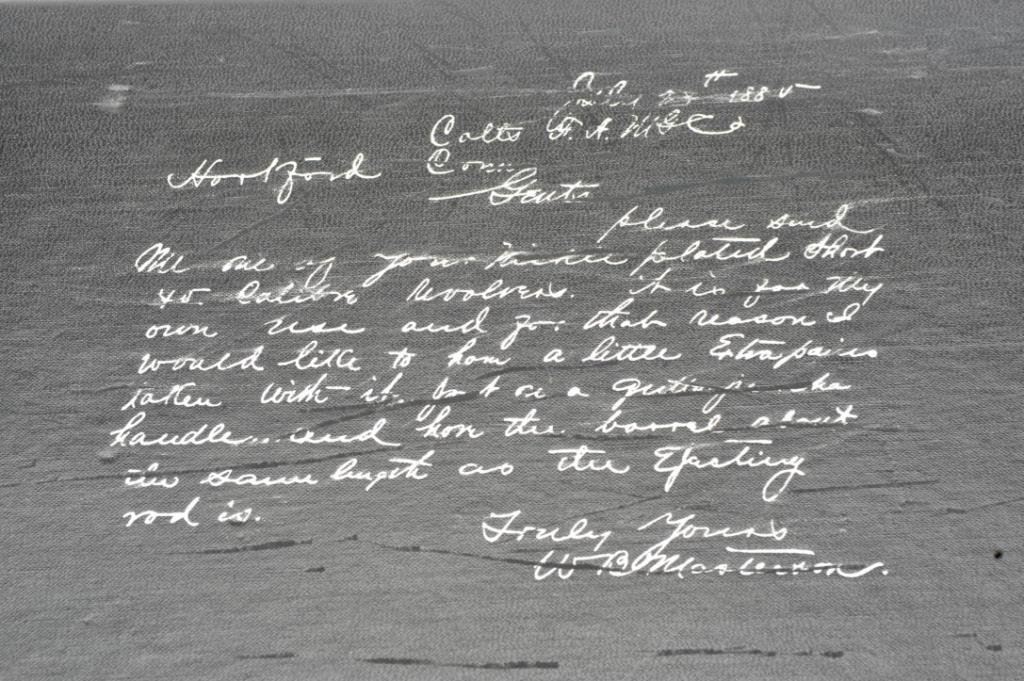 July 24th 1885
Colts F. A. Mfg Co
Hartford Conn
Gents
please send
Me one of your Nickle plated Short
45. Calibre revolvers. it is for my
own use and for that reason I
would like to have a little Extra pains
taken with it. put on a gutta pe ha
handle and have the barrel about
the same length as the Ejecting
rod is.
Truly Yours
W B Masterson.